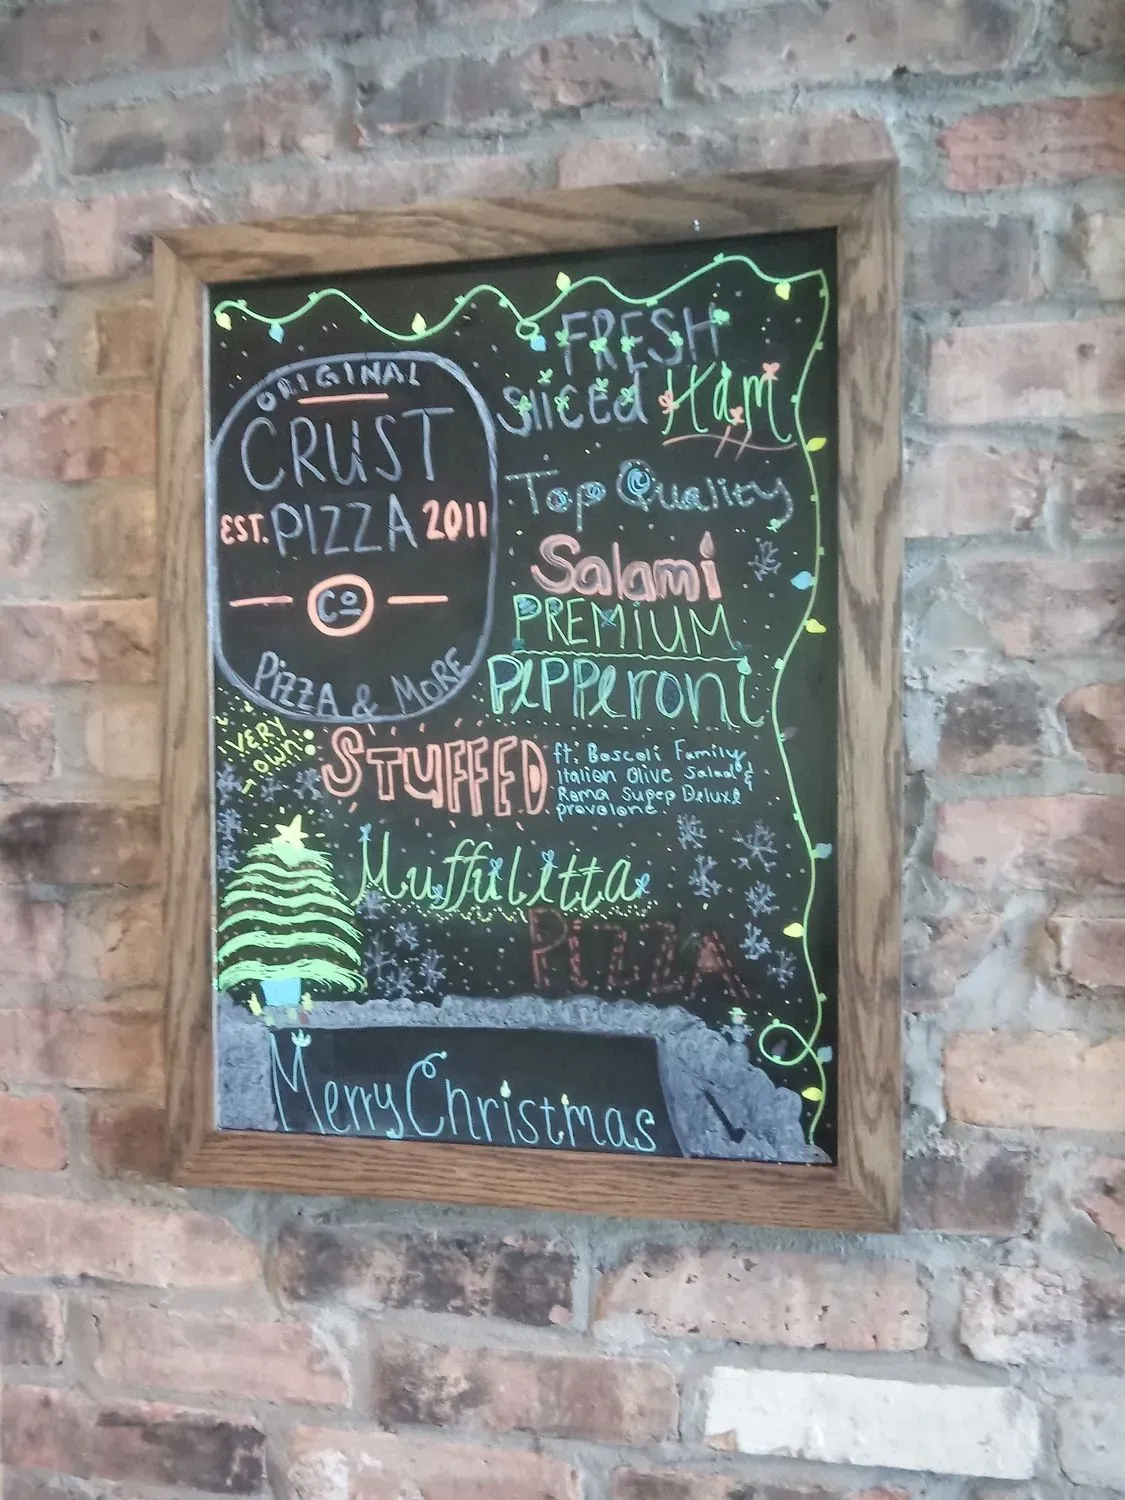 ORIGINAL
CRUST
EST. PIZZA 2011
Co
PIZZA & MORE
FRESH
Sliced Ham
Top Quality
Salami
PREMIUM
PEPPeroni
VERY
TOWN:
STUFFED
ft: Boscoli Family
Italian Olive Salad &
Roma Super Deluxe
provolone.
Muffuletta
PIZZA
Merry Christmas